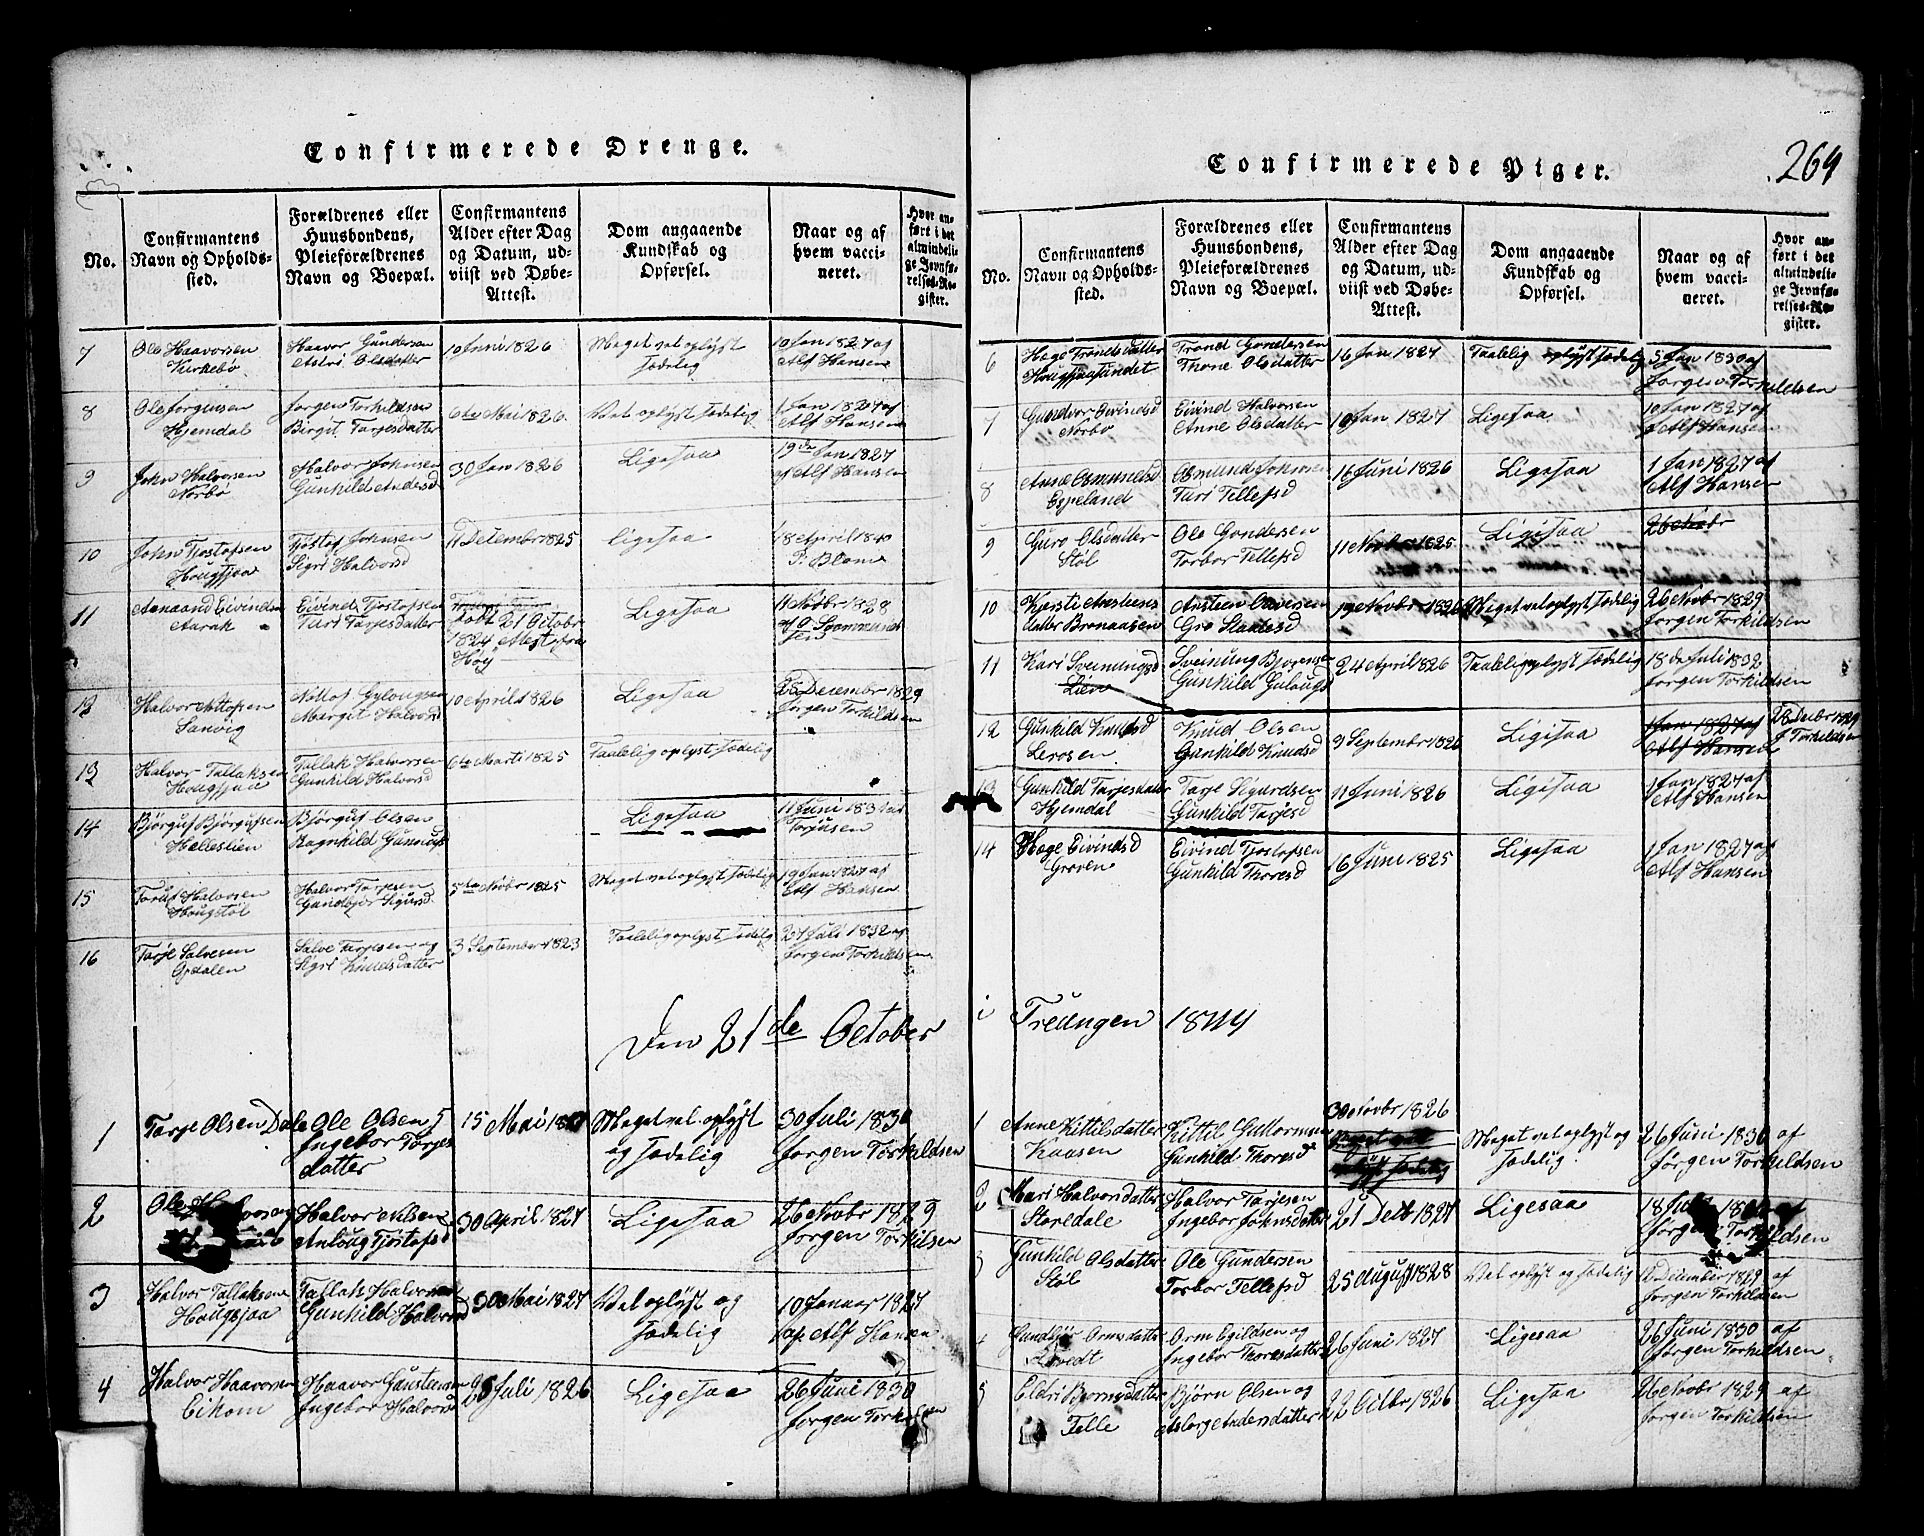 Confirmerede Drenge.
No.
Confirmantens
Navn og Opholds-
sted.
Forældrenes eller
Huusbondens,
Pleieforældrenes
Navn og Boepæl.
Confirmantens
Alder efter Dag
og Datum, ud-
viist ved Døbe-
Attest.
Dom angaaende
Kundskab og
Opførsel.
Naar og af
hvem vacci-
neret.
Hvor an-
ført i det
almindeli-
ge Jevnfø-
relses-Re-
gister.
7
Ole Haavorsen
Haavor Gundersen
Astri Olsdatter
10 Juni 1826
Meget vel oplyst
sædelig
10 Jan 1827 af
Alf Hansen
8
Ole Jørgensen
Hjemdal
Jørgen Torkildsen
Birgit Tarjesdatter
6te Mai 1826
Vel oplyst sædelig
1 Jan 1827 af
Alf Hansen
9
John Halvorsen
Norbø
Halvor Johnsen
Gunhild Andersd
30 Jan 1826
Ligesaa
19de Jan 1827
af Alf Hansen
10
John Tjostofsen
Hougsjaa
Tjostof Johnsen
Sigri Halvorsd
11 December 1825
ligesaa
18 April 1840
P. Blom
11
Aanaand Eivindsen
Aarak
Eivind Tjostofsen
Turi Tarjesdatter
født 21 October
1824
Ligesaa
11 Novbr 1828
12
Halvor
Sanvig
Margit Halvorsd
10 April 1826
Ligesaa
December 1829
Jørgen Torkildsen
13
Halvor Tallaksen
Hougsjaa
Tallak Halvorsen
Gunhild Halvorsd
6te Marti 1825
Taalelig oplyst sædelig
14
Bjørguf Bjørgufsen
Hellestien
Bjørguf Olsen
Ragnhild
Ligesaa
11 Juni 183
Torjusen
15
Halvorsen
Hougstøl
Halvor Tarjesen
5te Novbr 1825
Meget vel oplyst sædelig
19 Jan 1827 af
Alf Hansen
16
Tarje Salvesen
Opdalen
Salve Tarjesen og
Sigri Knudsdatter
3 September 1823
Taalelig oplyst sædelig
27 Juli 1832 af
Jørgen Torkildsen
Den 21de October
1
Tarje Olsen Dale
Ole Olsen
Ingebor Tarjes
datter
15 Mai
Meget vel oplyst
og sædelig
30 Juli 1830
Jørgen Torkildsen
2
Ole
Halvor Nilsen
Anloug Tjostofsd
30 April 1827
Ligesaa
26 Novbr 1829
Jørgen Torkilsen
3
Halvor Tallaksen
Hougsjaa
Tallak Halvorsen
Gunhild Halvorsd
30 Mai 1827
Vel oplyst og
sædelig
10 Januar 1827
af Alf Hansen
4
Halvor Haavorsen
Eikom
Haavor
Ingebor Halvorsd
Juli 1826
Ligesaa
26 Juni 1830
Jørgen
Confirmerede Piger.
264
No.
Confirmantens
Navn og Opholds-
sted.
Forældrenes eller
Huusbondens,
Pleieforældrenes
Navn og Boepæl.
Confirmantens
Alder efter Dag
og Datum, ud-
viist ved Døbe-
Attest.
Dom angaaende
Kundskab og
Opførsel.
Naar og af
hvem vacci-
neret.
Hvor an-
ført i det
almindeli-
ge Jevnfø-
relses-Re-
gister.
6
Hæge Trondsdatter
Hougsjaasundet
Trond Gundersen
Thone Olsdatter
16 Jan 1827
Taalelig oplyst sædelig
5 Jan 1830 af
Jørgen Torkildsen
7
Gundvor Eivindsd
Norbø
Eivind Halvorsen
Anne Olsdatter
10 Jan 1827
Ligesaa
10 Jan 1827 af
Alf Hansen
8
Anne Osmundsd
Espeland
Osmund Johnsen
Turi Tellefsd
16 Juni 1826
Ligesaa
1 Jan 1827 af
Alf Hansen
9
Guro Olsdatter
Støl
Ole Gundersen
Torbor Tellefsd
11 Novbr 1825
Ligesaa
26 Novbr
10
Kjersti Austens
datter Bronaasen
Austen
Gro
Novbr 1826
Meget vel oplyst sædelig
26 Novbr 1829
Jørgen Torkildsen
11
Kari Sveinungsd
Lien
Sveinung Bjørnsen
Gunhild Gulougsd
24 April 1826
Taalelig oplyst sædelig
18de Juli 1832
Jørgen Torkildsen
12
Gunhild Knudsd
Lerosen
Knud Olsen
Gunhild Knudsd
9 September 1826
Ligesaa
1 Jan 1827 af
Alf Hansen
28 Decbr 1829
J Torkildsen
13
Gunhild Tarjesdatter
Hjemdal
Tarje Sigurdsen
Gunhild Tarjesd
11 Juni 1826
Ligesaa
1 Jan 1827 af
Alf Hansen
14
Hæge Eivindsd
Groven
Eivind Tjostofsen
Gunhild Thoresd
16 Juni 1825
Ligesaa
1 Jan 1827 af
Alf Hansen
i Treungen 1844
1
Anne Kittilsdatter
Kaasen
Kittil Guttormsen
Gunhild Thoresd
30 Novbr 1826
Meget vel
oplyst sædelig
Meget vel oplyst og
sædelig
26 Juni 1830 af
Jørgen Torkildsen
2
Mari Halvorsdatter
Storedale
Halvor Tarjesen
Ingebor Johnsdatter
21 Decb 1827
Ligesaa
18
Jørgen Torkildsen
3
Gunhild Olsdatter
Støl
Ole Gundersen
Torbor Tellefsd
25 August 1828
Vel oplyst og sædelig
December 1829 af
Jørgen Torkildsen
4
Ormsdatter
Orm Egildsen og
Ingebor Thoresdatter
26 Juni 1827
Ligesaa
26 Juni 1830 af
Jørgen Torkildsen
5
Eldri Bjørnsdatter
Felle
Bjørn Olsen og
Aslorg Andersdatter
22 Octbr 1826
Ligesaa
26 Novbr 1829 af
Jørgen Torkildsen